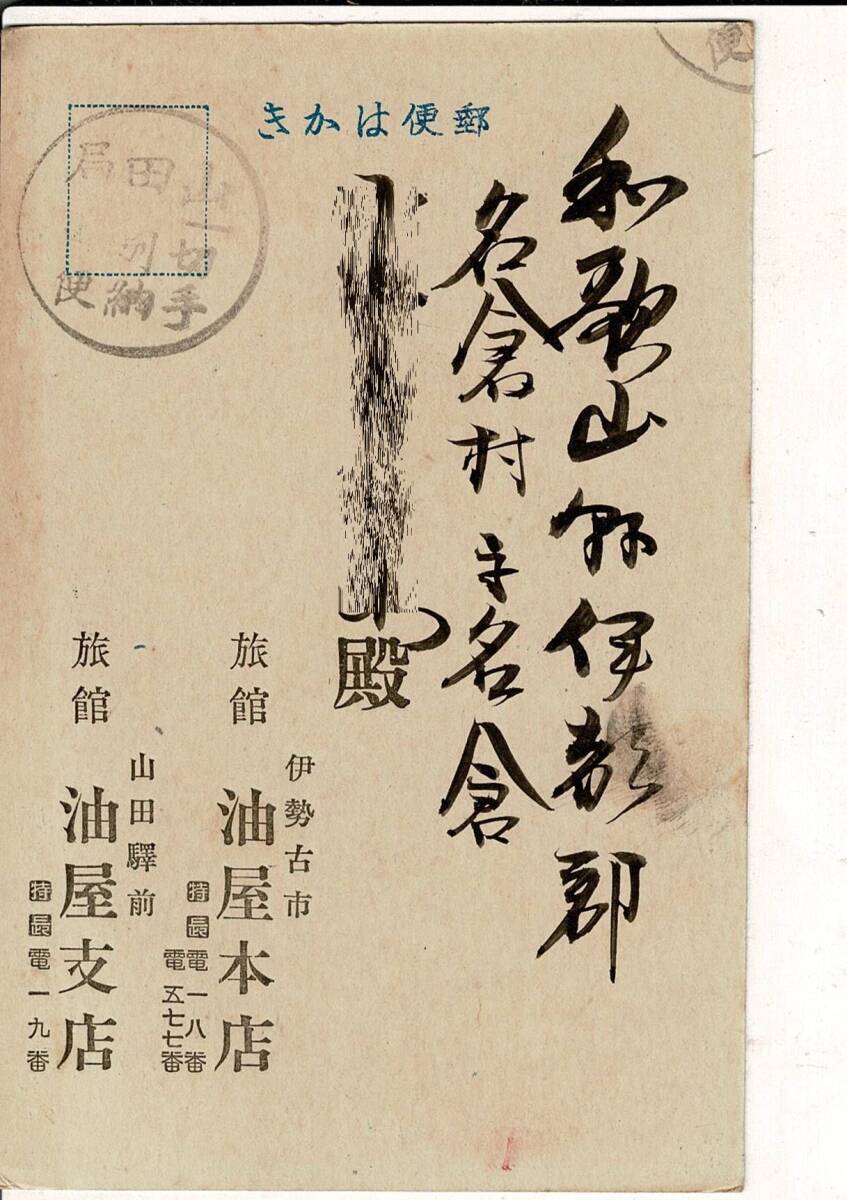 きかは便郵
和歌山縣伊都郡
名倉村字名倉
殿
伊勢古市
旅館 油屋本店
特長電一八番
電五七七番
山田驛前
旅館 油屋支店
特長電一九番
山田局
切手別納
便
便